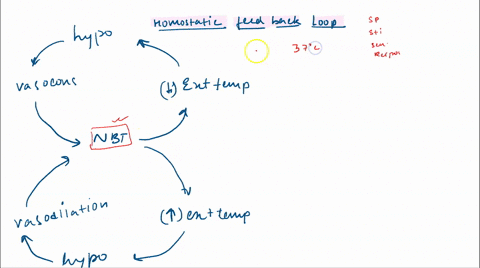 Homostatic feed back Loop
SP
Sti
37°C
hypo
vasocons
(↓) Ext temp
NBT
vasodilation
(↑) ext temp
hypo